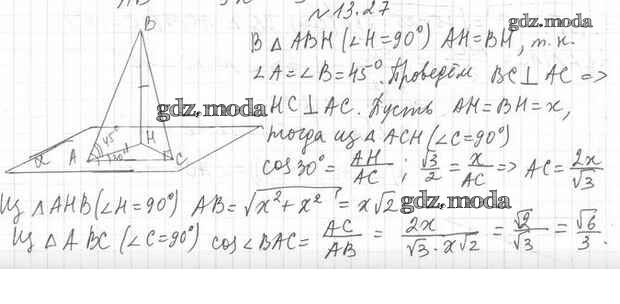 №13.27
gdz.moda
В △ ABH (∠H=90°) AH=BH, т.к.
∠A=∠B=45°. Проведём BC⊥AC =>
gdz.moda
HC⊥AC. Пусть AH=BH=x,
тогда из △ ACH (∠C=90°)
cos30°= AH/AC ; √3/2 = x/AC => AC= 2x/√3
B
45°
30°
H
α
A
C
Из △ AHB (∠H=90°) AB=√x²+x² = x√2
gdz.moda
Из △ ABC (∠C=90°) cos∠BAC= AC/AB = 2x/√3·x√2 = √2/√3 = √6/3.